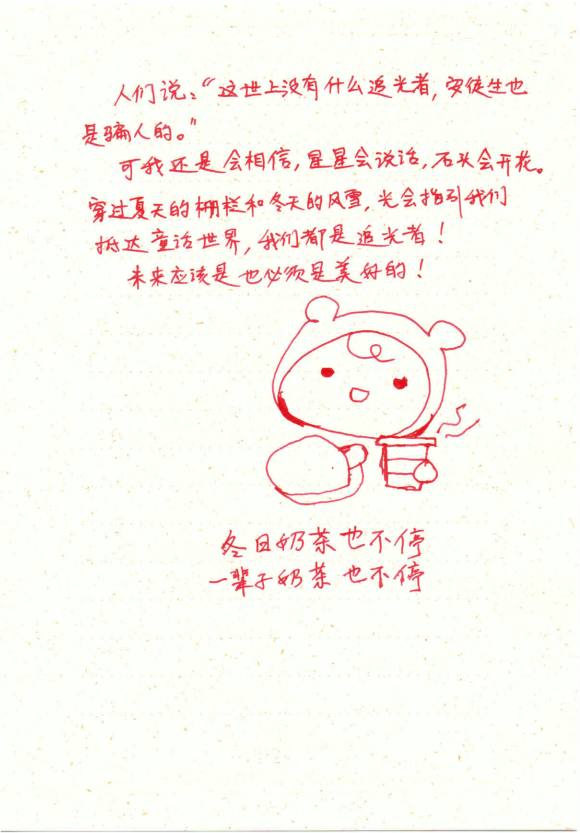 人们说：“这世上没有什么追光者，安徒生也
是骗人的。”
可我还是会相信，星星会说话，石头会开花。
穿过夏天的栅栏和冬天的风雪，光会指引我们
抵达童话世界，我们都是追光者！
未来应该是也必须是美好的！
冬日奶茶也不停
一辈子奶茶也不停